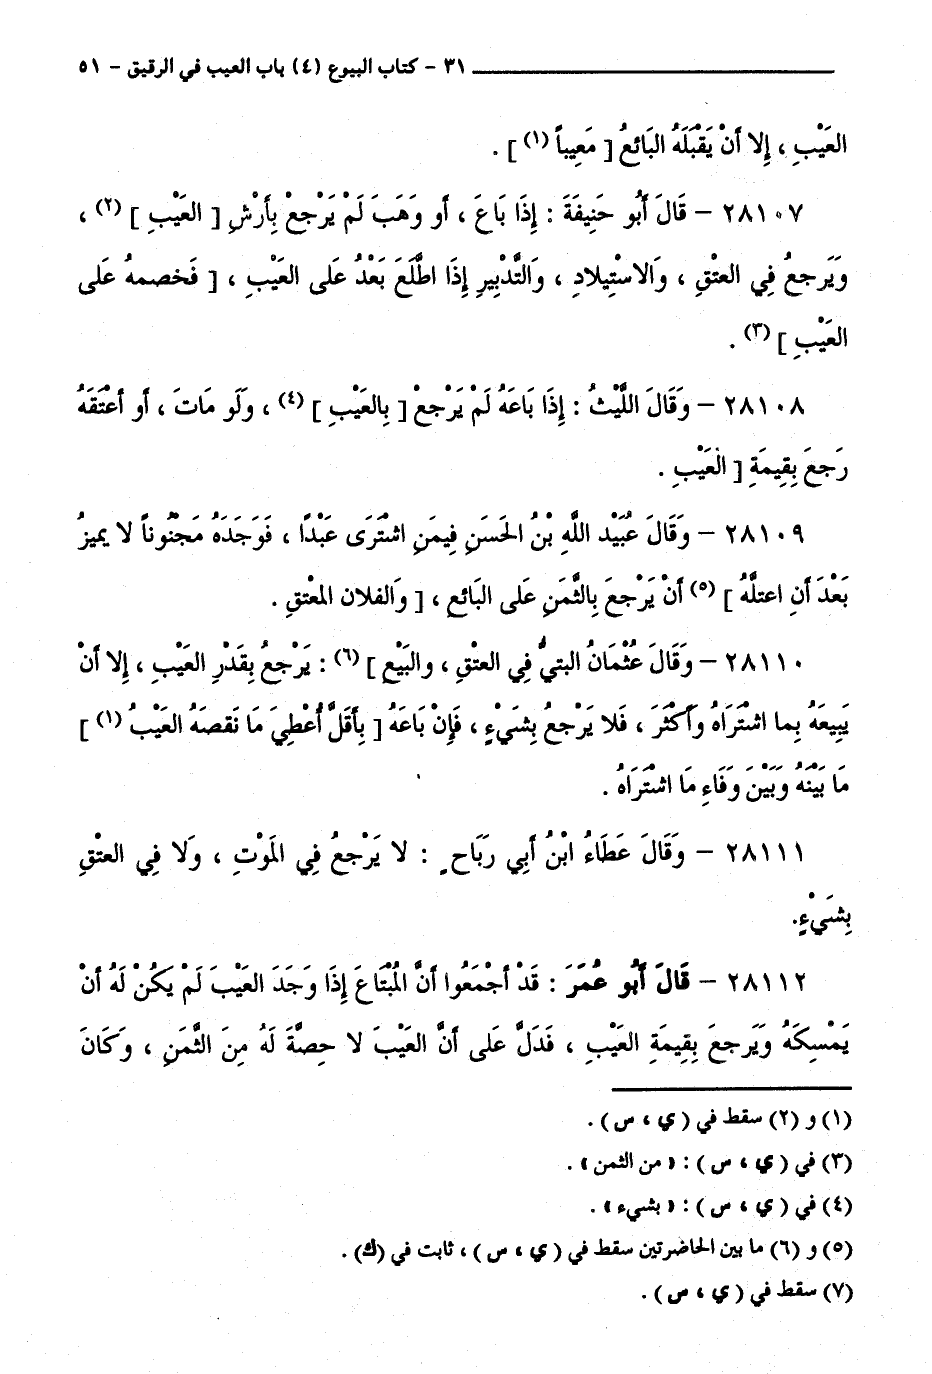 ٣١ - كتاب البيوع (٤) باب العيب في الرقيق - ٥١
العَيْبِ ، إِلا أَنْ يَقْبَلَهُ البَائعُ [ مَعِيباً (١) ] .
٢٨١٠٧ - قَالَ أَبُو حَنِيفَةَ : إِذَا بَاعَ ، أَو وَهَبَ لَمْ يَرْجعْ بِأَرْشِ [ العَيْبِ ] (٢) ،
وَيَرجعُ فِي العتْقِ ، وَالاسْتِيلادِ ، وَالتَّدْبِيرِ إِذَا اطَّلَعَ بَعْدُ عَلى العَيْبِ ، [ فَخصمهُ عَلى
العَيْبِ ] (٣) .
٢٨١٠٨ - وَقَالَ اللَّيْثُ : إِذَا بَاعَهُ لَمْ يَرْجعْ [ بِالعَيْبِ ] (٤) ، وَلَو مَاتَ ، أَو أعْتَقَهُ
رَجعَ بِقِيمَةِ [ العَيْبِ .
٢٨١٠٩ - وَقَالَ عُبَيْد اللَّهِ بْنُ الحَسَنِ فِيمَنِ اشْتَرَى عَبْدًا ، فَوَجَدَهُ مَجْنُوناً لا يميزُ
بَعْدَ أَنِ اعتلَّهُ ] (٥) أَنْ يَرْجعَ بِالثَّمَنِ عَلى البَائعِ ، [ وَالفلان المعْتقِ .
٢٨١١٠ - وَقَالَ عُثْمَانُ البتيُّ فِي العتْقِ ، والبَيْعِ ] (٦) : يَرْجعُ بِقَدْرِ العَيْبِ ، إِلا أَنْ
يَبِيعَهُ بِما اشْتَرَاهُ وَأَكْثَرَ ، فَلا يَرْجعُ بِشَيْءٍ ، فَإِنْ بَاعَهُ [ بِأَقَلَّ أُعْطِيَ مَا نَقصَهُ العَيْبُ (١) ]
مَا بَيْنَهُ وَبَيْنَ وَفَاءِ مَا اشْتَرَاهُ .
٢٨١١١ - وَقَالَ عَطَاءُ ابْنُ أَبِي رَبَاحٍ : لا يَرْجعُ فِي المَوْتِ ، وَلا فِي العتْقِ
بِشَيْءٍ.
٢٨١١٢ - قَالَ أَبُو عُمَرَ : قَدْ أَجْمَعُوا أَنَّ الْمُبْتَاعَ إِذَا وَجَدَ العَيْبَ لَمْ يَكُنْ لَهُ أَنْ
يَمْسِكَهُ وَيَرجعَ بِقِيمَةِ العَيْبِ ، فَدَلَّ عَلى أَنَّ العَيْبَ لا حِصَّةَ لَهُ مِنَ الثَّمَنِ ، وَكَانَ
(١) و (٢) سقط في ( ي ، س ) .
(٣) في ( ي ، س ) : « من الثمن » .
(٤) في ( ي ، س ) : « بشيء » .
(٥) و (٦) ما بين الحاضرتين سقط في ( ي ، س ) ، ثابت في (ك) .
(٧) سقط في ( ي ، س ) .